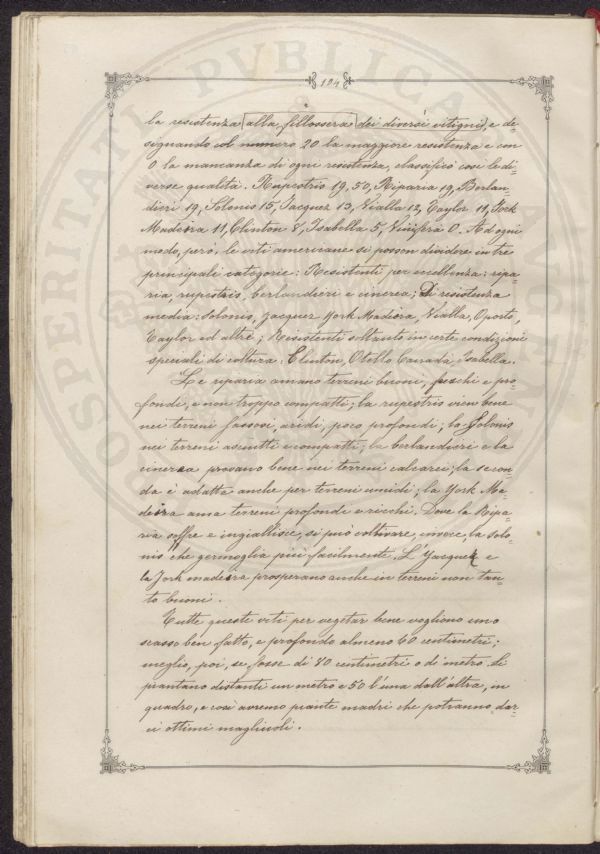 104
la resistenza alla fillossera dei diversi vitigni, e de-
signando col numero 20 la maggiore resistenza e con
0 la mancanza di ogni resistenza, classificò così le di-
verse qualità. Rupestris 19,50, Riparia 19, Berlan-
dieri 19, Solonis 15, Jacquez 13, Vialla 12, Taylor 11, York
Madeira 11, Clinton 8, Isabella 5, Vinifera 0. Ad ogni
modo, però, le viti americane si posson dividere in tre
principali categorie: Resistenti per eccellenza: ripa-
ria, rupestris, berlandieri e cinerea; Di resistenza
media: Solonis, Jacquez York Madeira, Vialla, Oporto,
Taylor ed altre; Resistenti soltanto in certe condizioni
speciali di coltura: Clinton, Otello Canada, Isabella.
Le riparia amano terreni buoni, freschi e pro-
fondi, e non troppo compatti; la rupestris vien bene
nei terreni sassosi, aridi, poco profondi; la Solonis
nei terreni asciutti e compatti; la berlandieri e la
cinerea provano bene nei terreni calcarei; la secon-
da è adatta anche per terreni umidi; la York Ma-
deira ama terreni profondi e ricchi. Dove la Ripa-
ria soffre e ingiallisce, si può coltivare, invece, la Solo-
nis che germoglia più facilmente. L'Jacquez e
la York madeira prosperano anche in terreni non tan-
to buoni.
Tutte queste viti per vegetar bene vogliono uno
scasso ben fatto, e profondo almeno 60 centimetri;
meglio, poi, se fosse di 80 centimetri o di metro. Si
piantano distanti un metro e 50 l'una dall'altra, in
quadro, e così avremo piante madri che potranno dar-
ci ottimi magliuoli.
PROSPERITATI PVBLICAE AVGENDAE